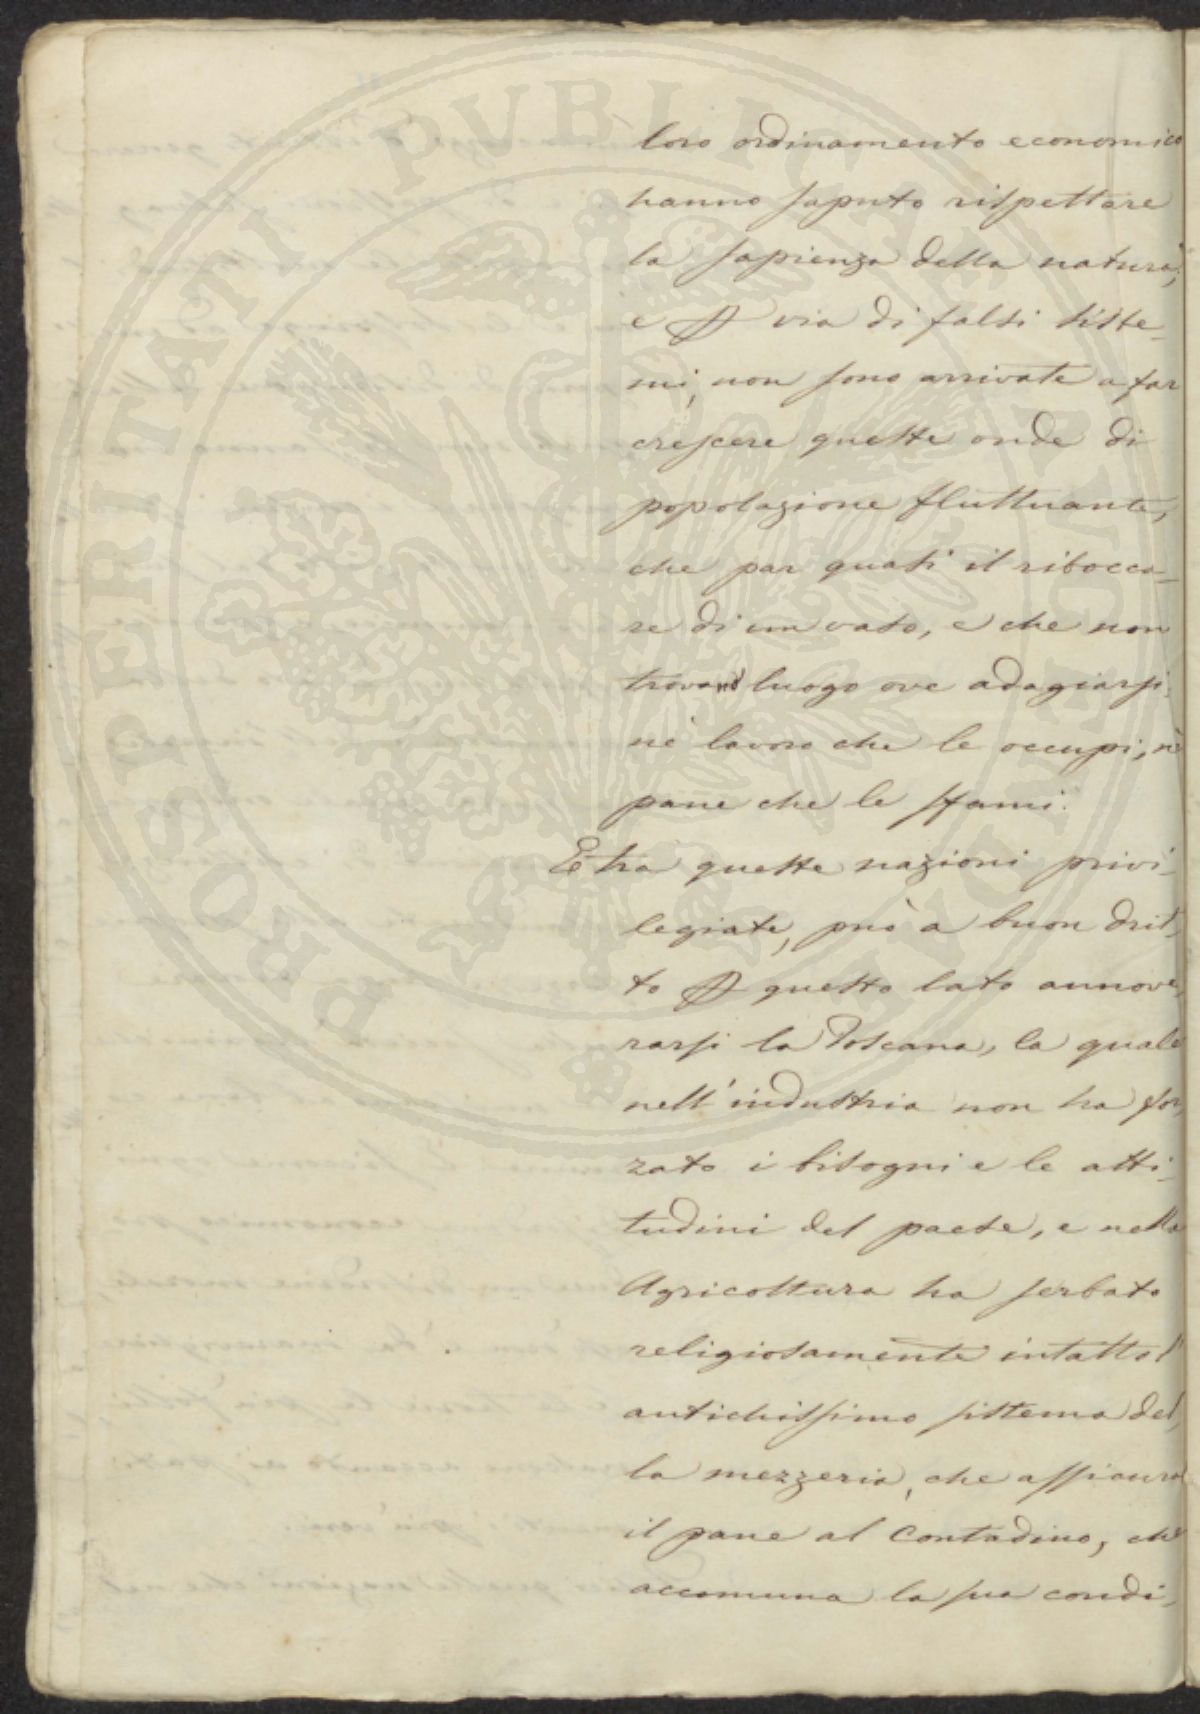 PROSPERITATI PUBLICAE AUGENDAE
loro ordinamento economico
hanno saputo rispettare
la sapienza della natura,
e via di falsi siste-
mi, non sono arrivate a far
crescere queste onde di
popolazione fluttuante,
che par quasi il ribocca-
re di un vaso, e che non
trovano luogo ove adagiarsi,
nè lavoro che le occupi, nè
pane che le sfami.
E tra queste nazioni privi-
legiate, può a buon drit-
to questo lato annove-
rarsi la Toscana, la quale
nell'industria non ha for-
zato i bisogni e le atti-
tudini del paese, e nella
Agricoltura ha serbato
religiosamente intatto l'
antichissimo sistema del-
la mezzeria, che assicura
il pane al Contadino, che
accomuna la sua condi-